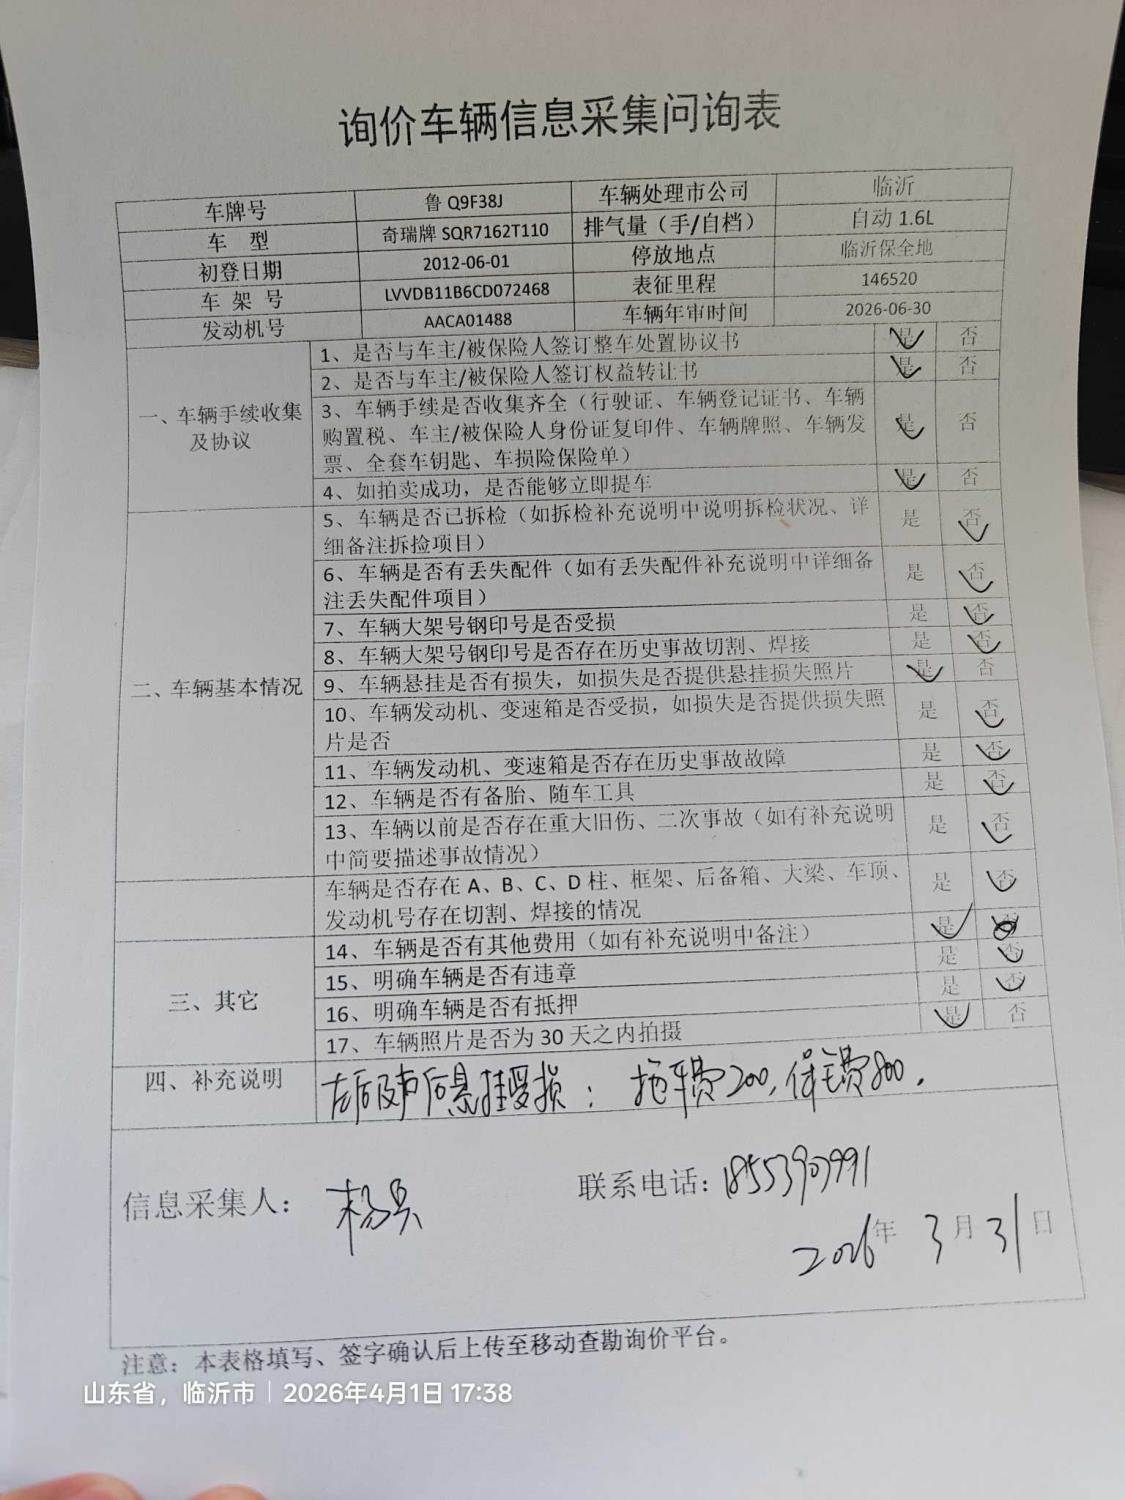 询价车辆信息采集问询表
车牌号 鲁 Q9F38J 车辆处理市公司 临沂
车 型 奇瑞牌 SQR7162T110 排气量（手/自档） 自动 1.6L
初登日期 2012-06-01 停放地点 临沂保全地
车 架 号 LVVDB11B6CD072468 表征里程 146520
发动机号 AACA01488 车辆年审时间 2026-06-30
一、车辆手续收集
及协议
1、是否与车主/被保险人签订整车处置协议书 是 否
2、是否与车主/被保险人签订权益转让书 是 否
3、车辆手续是否收集齐全（行驶证、车辆登记证书、车辆
购置税、车主/被保险人身份证复印件、车辆牌照、车辆发
票、全套车钥匙、车损险保险单） 是 否
4、如拍卖成功，是否能够立即提车 是 否
二、车辆基本情况
5、车辆是否已拆检（如拆检补充说明中说明拆检状况、详
细备注拆捡项目） 是 否
6、车辆是否有丢失配件（如有丢失配件补充说明中详细备
注丢失配件项目） 是 否
7、车辆大架号钢印号是否受损 是 否
8、车辆大架号钢印号是否存在历史事故切割、焊接 是 否
9、车辆悬挂是否有损失，如损失是否提供悬挂损失照片 是 否
10、车辆发动机、变速箱是否受损，如损失是否提供损失照
片是否 是 否
11、车辆发动机、变速箱是否存在历史事故故障 是 否
12、车辆是否有备胎、随车工具 是 否
13、车辆以前是否存在重大旧伤、二次事故（如有补充说明
中简要描述事故情况） 是 否
车辆是否存在 A、B、C、D 柱、框架、后备箱、大梁、车顶、
发动机号存在切割、焊接的情况 是 否
三、其它
14、车辆是否有其他费用（如有补充说明中备注） 是 否
15、明确车辆是否有违章 是 否
16、明确车辆是否有抵押 是 否
17、车辆照片是否为 30 天之内拍摄 是 否
四、补充说明 左后 后悬挂受损；拖车费200，保宅费800．
信息采集人： 杨 联系电话：
2026年 3月31日
注意：本表格填写、签字确认后上传至移动查勘询价平台。
山东省，临沂市 | 2026年4月1日 17:38